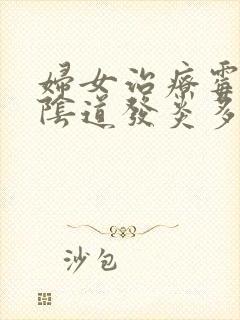 婦女治療霉
陰道發炎多
沙包